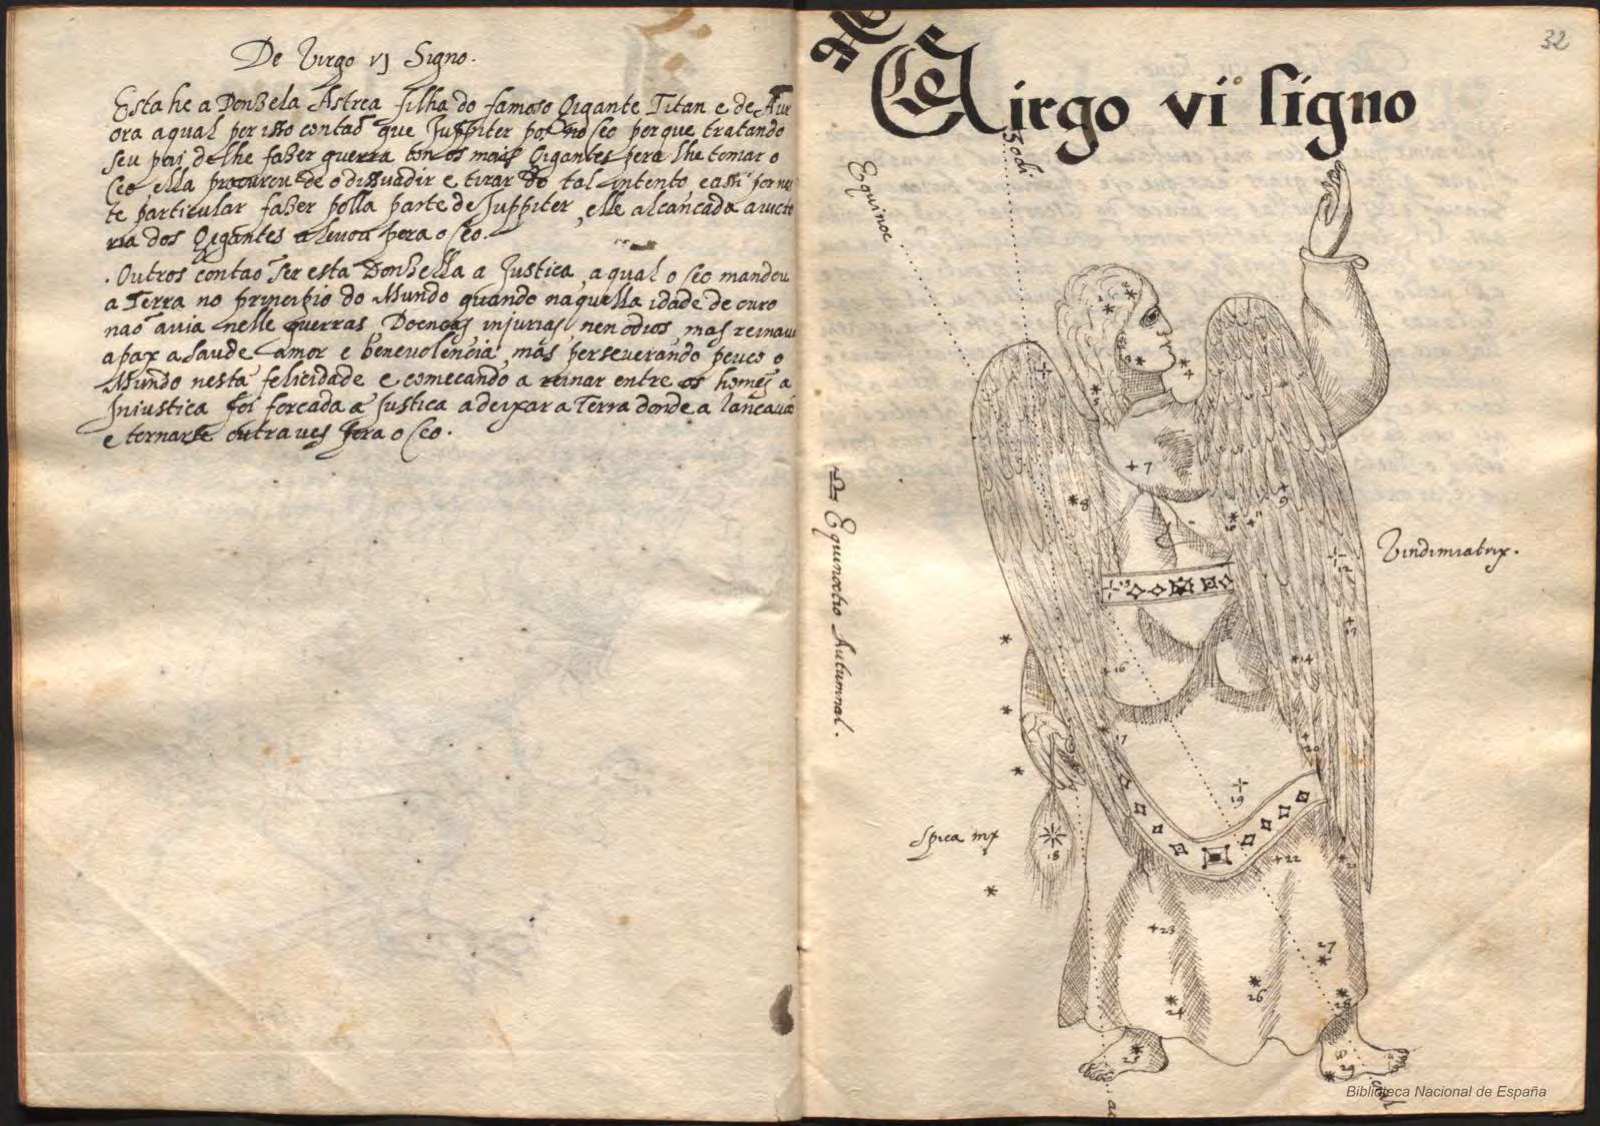 De Virgo vj Signo.
Esta he a Donzela Astrea filha do famoso Gigante Titan e de Aur
ora a qual per isso contaõ que Juppiter pos no seo porque tratando
seu pai de lhe fazer guerra con os mais Gigantes pera lhe tomar o
Ceo ella procurou de o dissuadir e tirar do tal intento, e assi por
te particular fazer polla parte de Juppiter, elle alcancada a victo
ria dos Gigantes a levou pera o Ceo.
. Outros contao ser esta Donzella a Justica, a qual o Ceo mandou
a Terra no principio do Mundo quando naquella idade de ouro
nao avia nelle guerras, Doencas injurias, nen odios, mas reinava
a pax a saude amor e benevolencia, mas perseverando pouco o
Mundo nesta felicidade e comecando a reinar entre os homes a
Iniustica foi forcada a Justica a deixar a Terra donde a lançavã
e tornarse outra ves pera o Ceo.
32
Virgo vi signo
Zodi
Equinoc
♎ Equinoctio Autumnal.
Vindimiatrix.
Spica mx
7
8
9
12
14
16
17
18
19
20
22
23
24
25
26
27
28
29
Biblioteca Nacional de España